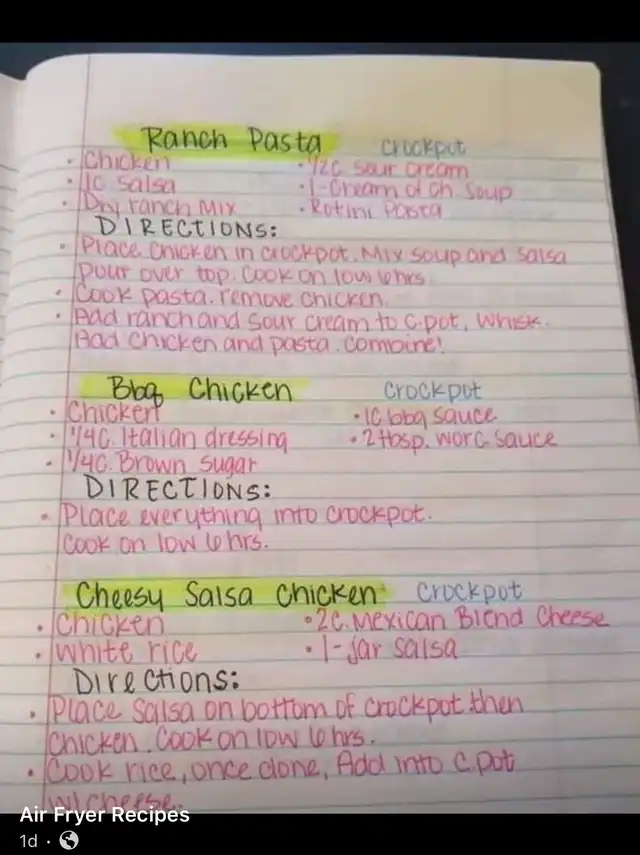 Ranch Pasta Crockpot
· Chicken · 1/2C sour cream
· 1C salsa · 1-Cream of Ch. Soup
· Dry ranch mix · Rotini Pasta
DIRECTIONS:
· Place chicken in crockpot. Mix soup and salsa
pour over top. Cook on low 6hrs
· Cook pasta. remove chicken.
· Add ranch and sour cream to C.pot. Whisk.
Add chicken and pasta. Combine!
Bbq Chicken Crockpot
· Chicken · 1C bbq sauce
· 1/4C. Italian dressing · 2 tbsp. worc. sauce
· 1/4C. Brown sugar
DIRECTIONS:
· Place everything into crockpot.
Cook on low 6hrs.
Cheesy Salsa Chicken Crockpot
· Chicken · 2C. Mexican Blend Cheese
· White rice · 1-jar salsa
Directions:
· Place Salsa on bottom of crockpot then
chicken. Cook on low 6hrs.
· Cook rice, once done, Add into C.pot
w/cheese.
Air Fryer Recipes
1d ·